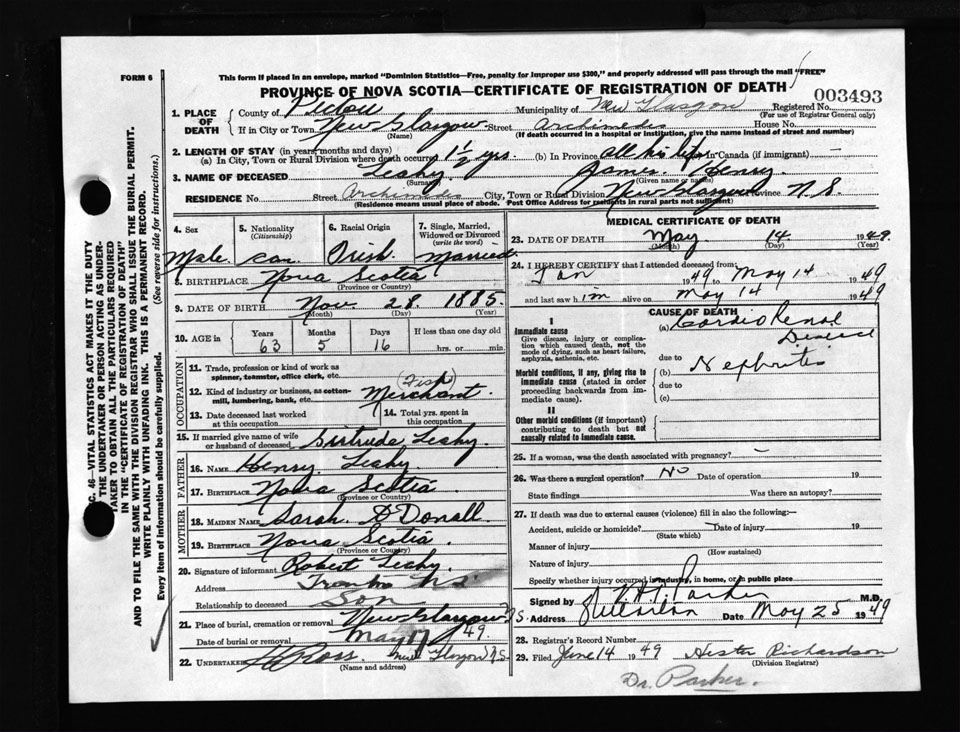 FORM 6
This form if placed in an envelope, marked "Dominion Statistics—Free, penalty for improper use $300," and properly addressed will pass through the mail "FREE"
PROVINCE OF NOVA SCOTIA—CERTIFICATE OF REGISTRATION OF DEATH
003493
1. PLACE OF DEATH
County of Pictou Municipality of New Glasgow Registered No.
(For use of Registrar General only)
If in City or Town New Glasgow Street Archimedes House No.
(Name) (If death occurred in a hospital or institution, give the name instead of street and number)
2. LENGTH OF STAY (in years, months and days)
(a) In City, Town or Rural Division where death occurred 1 1/2 yrs. (b) In Province all his life In Canada (if immigrant)
3. NAME OF DECEASED Leahy James Henry
(Surname) (Given name or names)
RESIDENCE No. Street Archimedes City, Town or Rural Division New Glasgow Province N.S.
(Residence means usual place of abode. Post Office Address for residents in rural parts not sufficient)
4. Sex Male
5. Nationality (Citizenship) Can.
6. Racial Origin Irish
7. Single, Married, Widowed or Divorced (write the word) Married
8. BIRTHPLACE Nova Scotia
(Province or Country)
9. DATE OF BIRTH Nov. 28 1885
(Month) (Day) (Year)
10. AGE in Years Months Days If less than one day old
63 5 16 hrs. or min.
OCCUPATION
11. Trade, profession or kind of work as spinner, teamster, office clerk, etc.
12. Kind of industry or business, as cotton-mill, lumbering, bank, etc. (Fish) Merchant
13. Date deceased last worked at this occupation
14. Total yrs. spent in this occupation
15. If married give name of wife or husband of deceased Gertrude Leahy
FATHER
16. NAME Henry Leahy
17. BIRTHPLACE Nova Scotia
(Province or Country)
MOTHER
18. MAIDEN NAME Sarah
19. BIRTHPLACE Nova Scotia
(Province or Country)
20. Signature of informant Robert Leahy
Address NS
Relationship to deceased Son
21. Place of burial, cremation or removal New Glasgow N.S.
Date of burial or removal May 17 49
22. UNDERTAKER Ross New Glasgow N.S.
(Name and address)
MEDICAL CERTIFICATE OF DEATH
23. DATE OF DEATH May 14 1949
(Month) (Day) (Year)
24. I HEREBY CERTIFY that I attended deceased from:
Jan 1949 to May 14 1949
and last saw him alive on May 14 1949
CAUSE OF DEATH
I
Immediate cause
Give disease, injury or complication which caused death, not the mode of dying, such as heart failure, asphyxia, asthenia, etc.
(a) Cardio Renal Disease
due to
Morbid conditions, if any, giving rise to immediate cause (stated in order proceeding backwards from immediate cause).
(b) Nephritis
due to
(c)
II
Other morbid conditions (if important) contributing to death but not causally related to immediate cause.
25. If a woman, was the death associated with pregnancy? —
26. Was there a surgical operation? No Date of operation 19
State findings Was there an autopsy?
27. If death was due to external causes (violence) fill in also the following:—
Accident, suicide or homicide? Date of injury 19
(State which)
Manner of injury
(How sustained)
Nature of injury
Specify whether injury occurred in industry, in home, or in public place
Signed by Parker M.D.
Address Date May 25 1949
28. Registrar's Record Number
29. Filed June 14 1949 Hester Richardson
(Division Registrar)
Dr. Parker.
C. 46—VITAL STATISTICS ACT MAKES IT THE DUTY
THE UNDERTAKER OR PERSON ACTING AS UNDER-
TAKER TO OBTAIN ALL THE PARTICULARS REQUIRED
IN THE "CERTIFICATE OF REGISTRATION OF DEATH"
AND TO FILE THE SAME WITH THE DIVISION REGISTRAR WHO SHALL ISSUE THE BURIAL PERMIT.
WRITE PLAINLY WITH UNFADING INK. THIS IS A PERMANENT RECORD.
Every item of information should be carefully supplied. (See reverse side for instructions.)